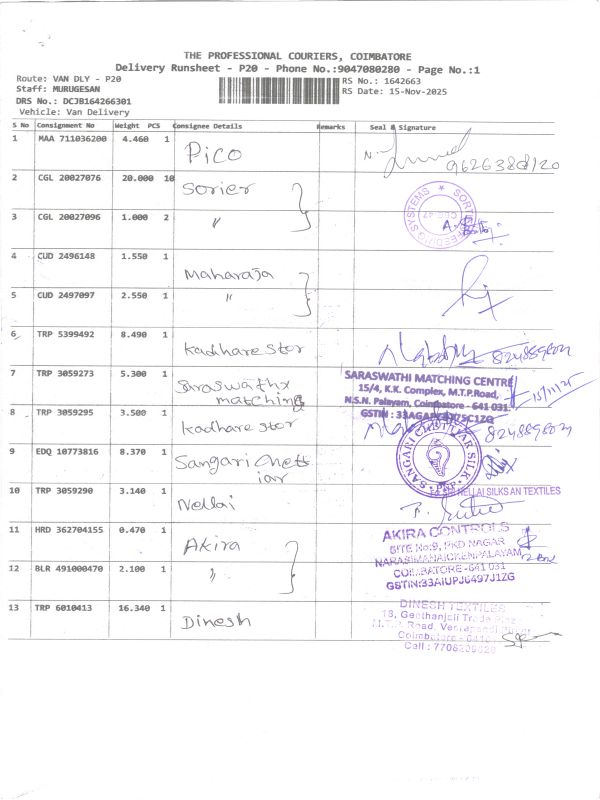 THE PROFESSIONAL COURIERS, COIMBATORE
Delivery Runsheet - P20 - Phone No.:9047080280 - Page No.:1
Route: VAN DLY - P20
RS No.: 1642663
Staff: MURUGESAN
RS Date: 15-Nov-2025
DRS No.: DCJB164266301
Vehicle: Van Delivery
S No Consignment No Weight PCS Consignee Details Remarks Seal & Signature
1 MAA 711036200 4.460 1 Pico
2 CGL 20027076 20.000 10 Sorier
SORT FEEDING SYSTEMS
3 CGL 20027096 1.000 2 "
4 CUD 2496148 1.550 1 Maharaja
5 CUD 2497097 2.550 1 "
6 TRP 5399492 8.490 1 Kadhare stor
7 TRP 3059273 5.300 1 Saraswathx matching
SARASWATHI MATCHING CENTRE
15/4, K.K. Complex, M.T.P.Road,
N.S.N. Palayam, Coimbatore - 641 031.
15/11/25
8 TRP 3059295 3.500 1 Kadhare stor
9 EDQ 10773816 8.370 1 Sangari Chettiar
SANGARI CHETTIAR SILK
10 TRP 3059290 3.140 1 Nellai
NELLAI SILKS AN TEXTILES
11 HRD 362704155 0.470 1 Akira
AKIRA CONTROLS
SITE No:9, PKD NAGAR
NARASIMANAICKENPALAYAM
COIMBATORE -641 031
GSTIN:33AIUPJ6497J1ZG
12 BLR 491000470 2.100 1 "
13 TRP 6010413 16.340 1 Dinesh
DINESH TEXTILES
18, Geethanjali Trade Plaza
M.T.P. Road,
Coimbatore - 641
Cell :